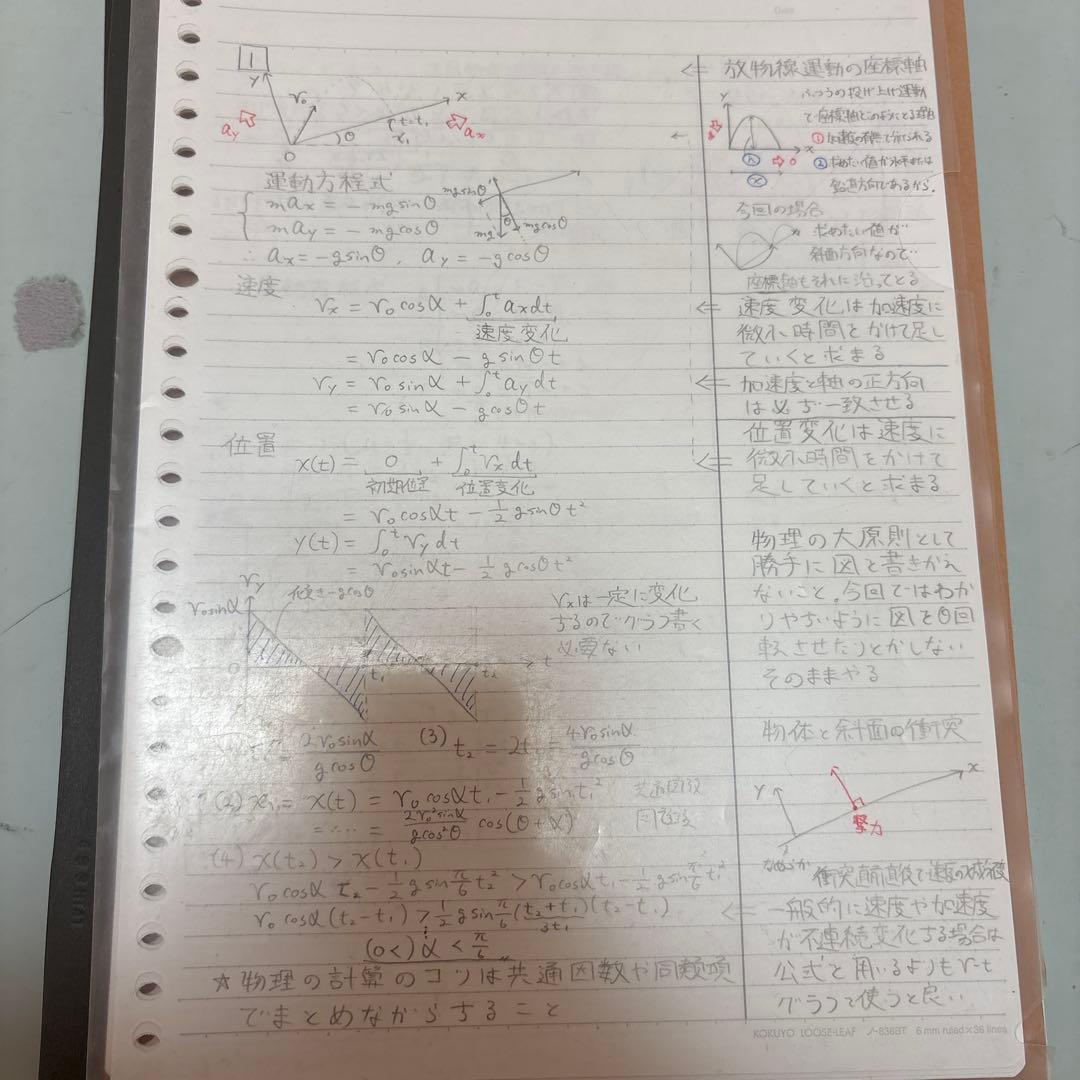 1
y
v₀
x
t=t₁
x₁
θ
0
a_y
a_x
運動方程式
ma_x = - mg sinθ
ma_y = - mg cosθ
∴ a_x = -g sinθ , a_y = -g cosθ
mg sinθ
θ
mg
mg cosθ
速度
v_x = v₀ cosα + ∫₀ᵗ a_x dt
速度変化
= v₀ cosα - g sinθ t
v_y = v₀ sinα + ∫₀ᵗ a_y dt
= v₀ sinα - g cosθ t
位置
x(t) = 0 + ∫₀ᵗ v_x dt
初期位置 位置変化
= v₀ cosα t - 1/2 g sinθ t²
y(t) = ∫₀ᵗ v_y dt
= v₀ sinα t - 1/2 g cosθ t²
v_y
傾き -g cosθ
v₀ sinα
0
t₁
t₂
t
v_xは一定に変化
するのでグラフ書く
必要ない
2v₀ sinα / g cosθ
(3) t₂ = 2t₁ = 4v₀ sinα / g cosθ
(2) x₁ = x(t) = v₀ cosα t₁ - 1/2 g sin t₁²
= … = 2v₀² sinα / g cos²θ cos(θ+α)
(4) x(t₂) > x(t₁)
v₀ cosα t₂ - 1/2 g sin π/6 t₂² > v₀ cosα t₁ - 1/2 g sin π/6 t₁²
v₀ cosα (t₂ - t₁) > 1/2 g sin π/6 (t₂ + t₁)(t₂ - t₁)
3t₁
(0<) α < π/6
☆物理の計算のコツは共通因数や同類項
でまとめながらすること
放物線運動の座標軸
ふつうの投げ上げ運動
で座標軸をこのようにとる理由
①加速度の有無で分けられる
②求めたい値が水平または
鉛直方向であるから。
y
h
x
x
0
今回の場合
求めたい値が
斜面方向なので
座標軸もそれに沿ってとる
速度変化は加速度に
微小時間をかけて足し
ていくと求まる
加速度と軸の正方向
は必ず一致させる
位置変化は速度に
微小時間をかけて
足していくと求まる
物理の大原則として
勝手に図を書きかえ
ないこと。今回ではわか
りやすいように図をθ回
転させたりとかしない
そのままやる
物体と斜面の衝突
y
x
撃力
なめらか
衝突直前直後で速度の
一般的に速度や加速度
が不連続変化する場合は
公式を用いるよりもv-t
グラフを使うと良い
KOKUYO LOOSE-LEAF ノ-836BT 6 mm ruled×36 lines